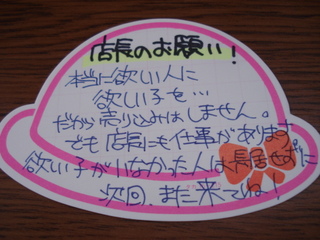 店長のお願い!
本当に欲しい人に
欲しい子を…
だから売り込みはしません。
でも店長にも仕事があります
欲しい子がいなかった人は長居せずに
次回、また来てね!